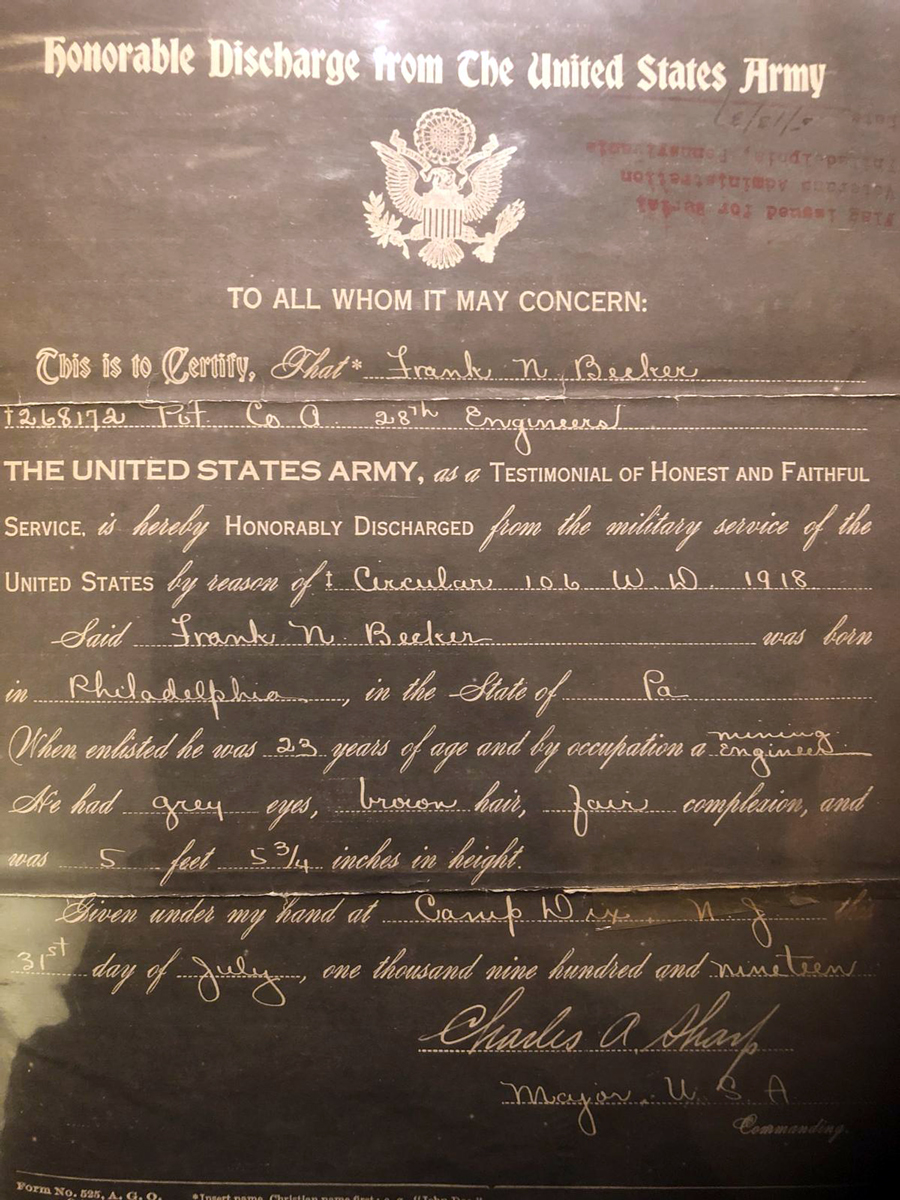 Honorable Discharge from The United States Army
Date 5/13/37
Philadelphia, Pennsylvania
Veterans Administration
Flag issued for Burial
TO ALL WHOM IT MAY CONCERN:
This is to Certify, That* Frank N Becker
†268172 Pvt Co A 28th Engineers
THE UNITED STATES ARMY, as a TESTIMONIAL OF HONEST AND FAITHFUL
SERVICE, is hereby HONORABLY DISCHARGED from the military service of the
UNITED STATES by reason of‡ Circular 106 W. D. 1918
Said Frank N. Becker was born
in Philadelphia, in the State of Pa
When enlisted he was 23 years of age and by occupation a mining engineer
He had grey eyes, brown hair, fair complexion, and
was 5 feet 5 3/4 inches in height.
Given under my hand at Camp Dix. N J this
31st day of July, one thousand nine hundred and nineteen
Charles A. Sharp
Major. U. S. A
Commanding.
Form No. 525, A. G. O. *Insert name, Christian name first; e. g.,